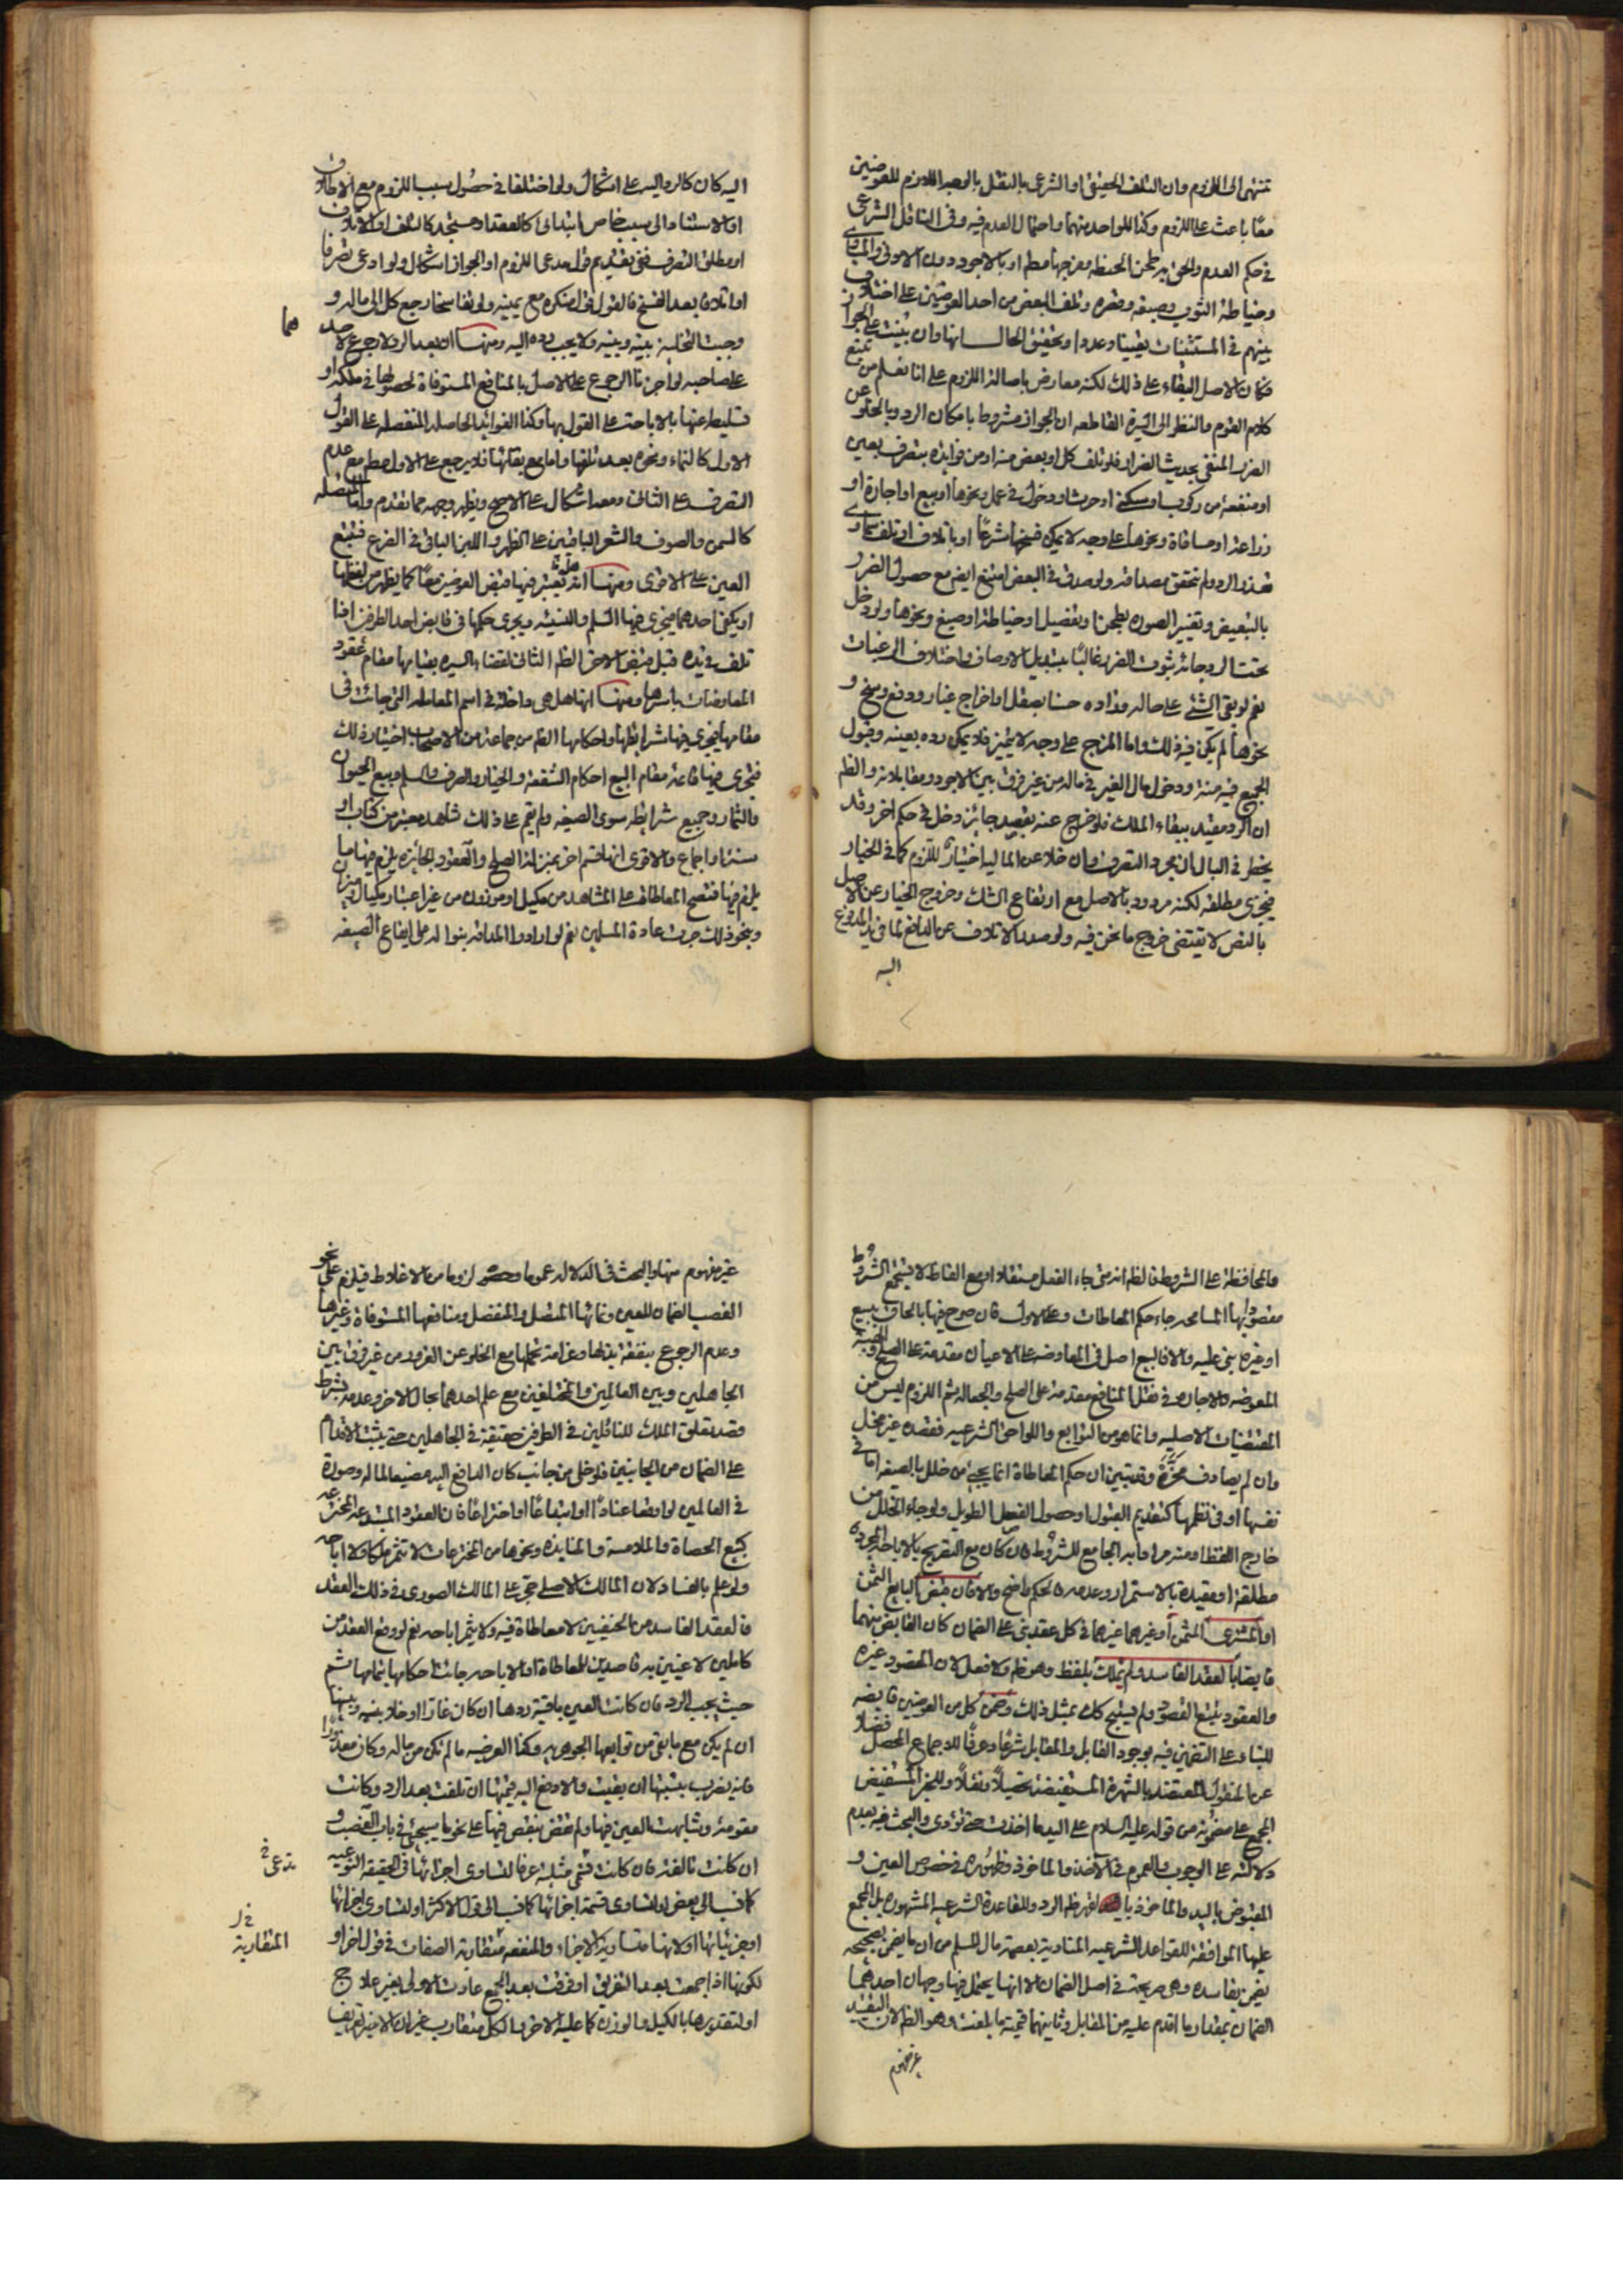 تنتهى الى اللزوم وان التلف الحقيقى او الشرعى بالنقل بالوجه اللازم للعوضين
معًا باعث على اللزوم وكذا للواحد منهما واحتمال العدم فيه وفى الناقل الشرعى
فى حكم العدم والحق به طحن الحنطة ومزجها مطم او بالاجود دون الادون والمساوى
وخياطة الثوب وصبغه وقصره وتلف البعض من احد العوضين على اختلاف
بينهم فى المستثنيات يقينا وعددا وتحقيق الحال انها وان بنيت على الجواز
فكان الاصل البقاء على ذلك لكنه معارض باصالة اللزوم على انا نعلم من تتبع
كلام القوم والنظر الى السيرة القاطعه ان الجواز مشروط بامكان الرد وبالخلو عن
الضرر المنفى بحديث الضرار فلو تلف كل او بعض منه او من فوايده بتصرف بعين
او منفعة من ركوب او سكنى او حرث او دخول فى عمل ونحوها او بيع او اجارة او
زراعة او مساقاة ونحوها على وجه لا يمكن فسخها شرعًا او باتلاف او تلف سماوى
تعذر الرد ولم تتحقق مصداقه ولو صدق فى البعض امتنع ايضا مع حصول الضرر
بالتبعيض وتغيير الصورة بطحن او تفصيل او خياطة او صبغ ونحوها ولو دخل
تحت الرد جائز بثوت الضرر غالبًا بتبديل الاوصاف واختلاف الرغبات
نعم لو بقى الشئ على حاله وزاده حسنا بصقل او اخراج غبار ودفع وسخ و
نحوها لم يكن فيه ذلك واما المزج على وجه لا يتميز فلا يمكن رده بعينه وقبول
الجميع فيه منة ودخول مال الغير فى ماله من غير فرق بين الاجود ومقابلاته والظ
ان الرد مقيد ببقاء الملك فلو خرج عنه بعقد جائز دخل فى حكم اخر وقد
يخطر فى البال ان مجرد التصرف وان خلا عن المالية اختيار للزوم كما فى الخيار
فيجزى مطلقه لكنه مردود بالاصل مع ارتفاع الشك وخروج الخيار عن الاصل
بالنص لا يقتضى خروج ما نحن فيه ولو صدر الاتلاف عن الدافع لما فى يد المدفوع
اليه
اليه كان كالرد اليه على اشكال ولو اختلفا فى حصول سبب اللزوم مع الاطلاق
او الاستناد الى سبب خاص ابتدائى كالعقد او مستجد كالتلف او الاتلاف
او مطلق التصرف ففى تقديم قول مدعى اللزوم او الجواز اشكال ولو ادعى تصرفا
او اتلافا بعد الفسخ فالقول قول منكره مع يمينه ولو تفاسخا رجع كل الى ماله و
وجبت التخلية بينه وبينه ولا يجب رده اليه ومنها ان بعد الرد لا رجوع لاحد
هما
على صاحبه لو اجزنا الرجوع على الاصل بالمنافع المستوفاة لحصولها فى ملكه او
تسليطه عنها بالاباحة على القول بها وكذا الفوائد الحاصلة المنفصلة على القول
الاول كالنماء ونحوه بعد تلفها واما مع بقائها فلا يرجع على الاول مطم مع عدم
التصرف على الثانى ومعه اشكال على الاصح ويظهر وجهه مما تقدم واما المتصلة
كالسمن والصوف والشعر الباقيين على الظهر واللبن الباقى فى الضرع فتتبع
العين على الاقوى ومنها انه هل يعتبر فيها قبض العوضين معًا كما يظهر من لفظها
او يكفى احدهما فيجزى فيها السلم والنسيئه ويجرى حكمها فى قابض احد الطرفين اذا
تلف فى يده قبل قبض الاخر الظم الثانى لقضاء السيره بقيامها مقام عقود
المعاوضات باسرها ومنها انها هل هى داخلة فى اسم المعاملة التى جائت فى
مقامها فيجرى فيها شرايطها واحكامها الظم من جماعة من الاصحاب اختيار ذلك
فيجرى فيها قائمة مقام البيع احكام الشفعة والخيار والصرف والسلم وبيع الحيوان
والثمار وجميع شرايطه سوى الصيغه ولم يقم على ذلك شاهد معتبر من كتاب او
سنة او اجماع والاقوى انها قسم اخر بمنزلة الصلح والعقود الجائزه يلزم فيها ما
يلزم فيها فتصح المعاطاة على المشاهد من مكيل او موزون من غير اعتبار مكيال وميزان
وبنحو ذلك جرت عادة المسلمين نعم لو ارادوا المداقة بنوا الامر على ايقاع الصيغه
والمحافظة على الشروط فالظم انه متى جاء الفعل مستقلا او مع الفاظ لا تستجمع الشروط
مقصود بها المسامحه جاء حكم المعاطات وعلى الاول فان صرح فيها بالحاق ببيع
او غيره بنى عليه والا فالبيع اصل فى المعاوضه على الاعيان مقدمة على الصلح والهبة
المعوضه والاجارة فى نقل المنافع مقدمة على الصلح والجعالة ثم اللزوم ليس من
المقتضيات الاصليه وانما هو من التوابع واللواحق الشرعيه فقصده غير مخل
وان لم يصادف محزّه وقد تبين ان حكم المعاطاة انما يجئ من خلل بالصيغه اما فى
نفسها او فى نظمها كتقديم القبول او حصول الفصل الطويل ولو جاء الخلل من
خارج اللفظ او منه مراد به الجامع للشروط فان كان مع التصريح بالاباحه المجرده
مطلقة او مقيدة بالاستمرار وعدمه فالحكم واضح والا فان قبض البايع الثمن
او المشترى المثمن او غيرهما غيرهما فى كل عقد بنى على الضمان كان القابض منهما
قابضا بالعقد الفاسد ولم يملك بلفظ وهو ظم ولا فعل لان المقصود غيره
والعقود يتبع القصود ولم يستبح كل بمثل ذلك وضمن كل من العوضين قابضه
للبناء على التضمين فيه لوجود القابل والمقابل شرعًا وعرفًا للاجماع المحصل فضلا
عن المنقول المعتضد بالشهرة المستفيضة تحصيلًا ونقلًا وللخبر المستفيض
المجمع على مضمونه من قوله عليه السلام على اليد ما اخذت حتى تؤدى والبحث فيه بعدم
دلالته على الوجوب والعموم فى الاخذ والماخوذ وظهوره فى خصوص العين و
المقبوض باليد والماخوذ لقهر ظم الرد وللقاعدة الشرعيه المشهوره بل المجمع
عليها الموافقة للقواعد الشرعيه المنادية بعصمة مال المسلم من ان ما يضمن بصحيحه
يضمن بفاسده وهى صريحة فى اصل الضمان الا انها يحتمل فيها وجهان احدهما
الضمان بمقدار ما اقدم عليه من المقابل وثانيهما قيمته ما بلغت وهو الظم لان التقييد
غير مفهوم
غير مفهوم منها والبحث فى الدلالة عموما وحصول لزوما من الاغلاط فيلزم على نحو
الغصب الضمان للعين ونمائها المتصل والمنفصل ومنافعها المستوفاة وغيرها
وعدم الرجوع بنفقة بذلها وغرامة تحملها مع الخلو عن الغرور من غير فرق بين
الجاهلين وبين العالمين والمختلفين مع علم احدهما بحال الاخر وعدمه بشرط
قصد تعلق الملك للناقلين فى الطرفين حقيقة فى الجاهلين حتى يثبت الاقدام
على الضمان من الجانبين فلو خلى من جانب كان الدافع اليه مضيعا لماله وصورة
فى العالمين لو اوقعا عنادًا او ابتداعًا او اختراعًا فان العقود المبتدعه المخترعه
كبيع الحصاة والملامسة والمنابذه ونحوها من المخترعات لا تثمر ملكا ولا اباحه
ولو علم بالفساد لان المالك الاصلى مجز على المالك الصورى فى ذلك العقد
فالعقد الفاسد من الحنفيين لا معاطاة فيه ولا يثمر اباحه نعم لو وقع العقد من
كاملين لاغيين به قاصدين للمعاطاة او الاباحه جائت احكامها بتمامها ثم
حيث يجب الرد فان كانت العين باقية ردها ان كان غارّا او خلا بينه وبينها
ان لم يكن مع ما بقى من توابعها الجوهريه وكذا العرضيه ما لم تكن من ماله وكان معذورا
فانه يضرب بنسبتها ان بقيت والا دفع اليه قيمتها ان تلفت بعد الرد وكانت
مقومة وشابهت العين فيها ولم تنقض بنقص فيها على نحو ما سيجئ فى باب الغصب و
ان كانت تالفة فان كانت تدعى فى مثلية عرفا لتساوى اجزائها فى الحقيقه النوعيه
كما نسب الى بعض او لتساوى قيمة اجزائها كما نسب الى قول الاكثر او لتساوى اجزائها
المتقاربة
او جزئياتها او لانها متساوية الاجزاء والمنفعة متقاربة الصفات فى قول اخر او
لكونها اذا جمعت بعد التفريق او فرقت بعد الجمع عادت الاولى بغير علاج
او لتقديرها بالكيل والوزن كما عليه الاخر والكل متقارب غير ان الاخير تعريف